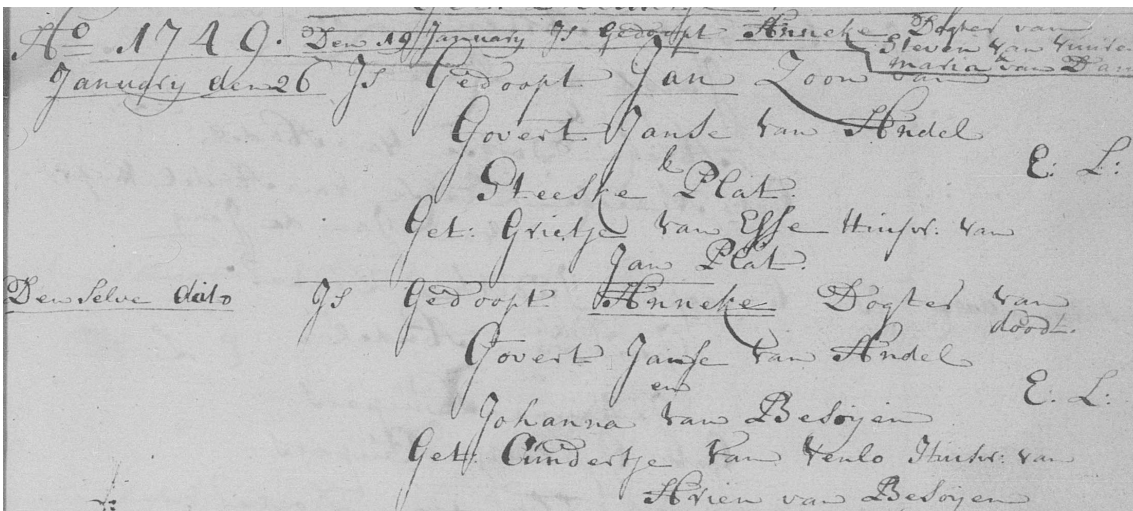 Ao 1749. Den 19 January Is Gedoopt Anneke Dogter van
Steven van
Maria van Dam
January den 26 Is Gedoopt Jan Zoon van
Govert Janse van Andel
&
Steeske Plat. E: L:
Get: Grietje van Esse Huisvr: van
Jan Plat.
Den selve dato Is Gedoopt Anneke Dogter van
doodt.
Govert Janse van Andel
en
Johanna van Besoijen E: L:
Get: Cundertje van Venlo Huisvr: van
Arien van Besoijen